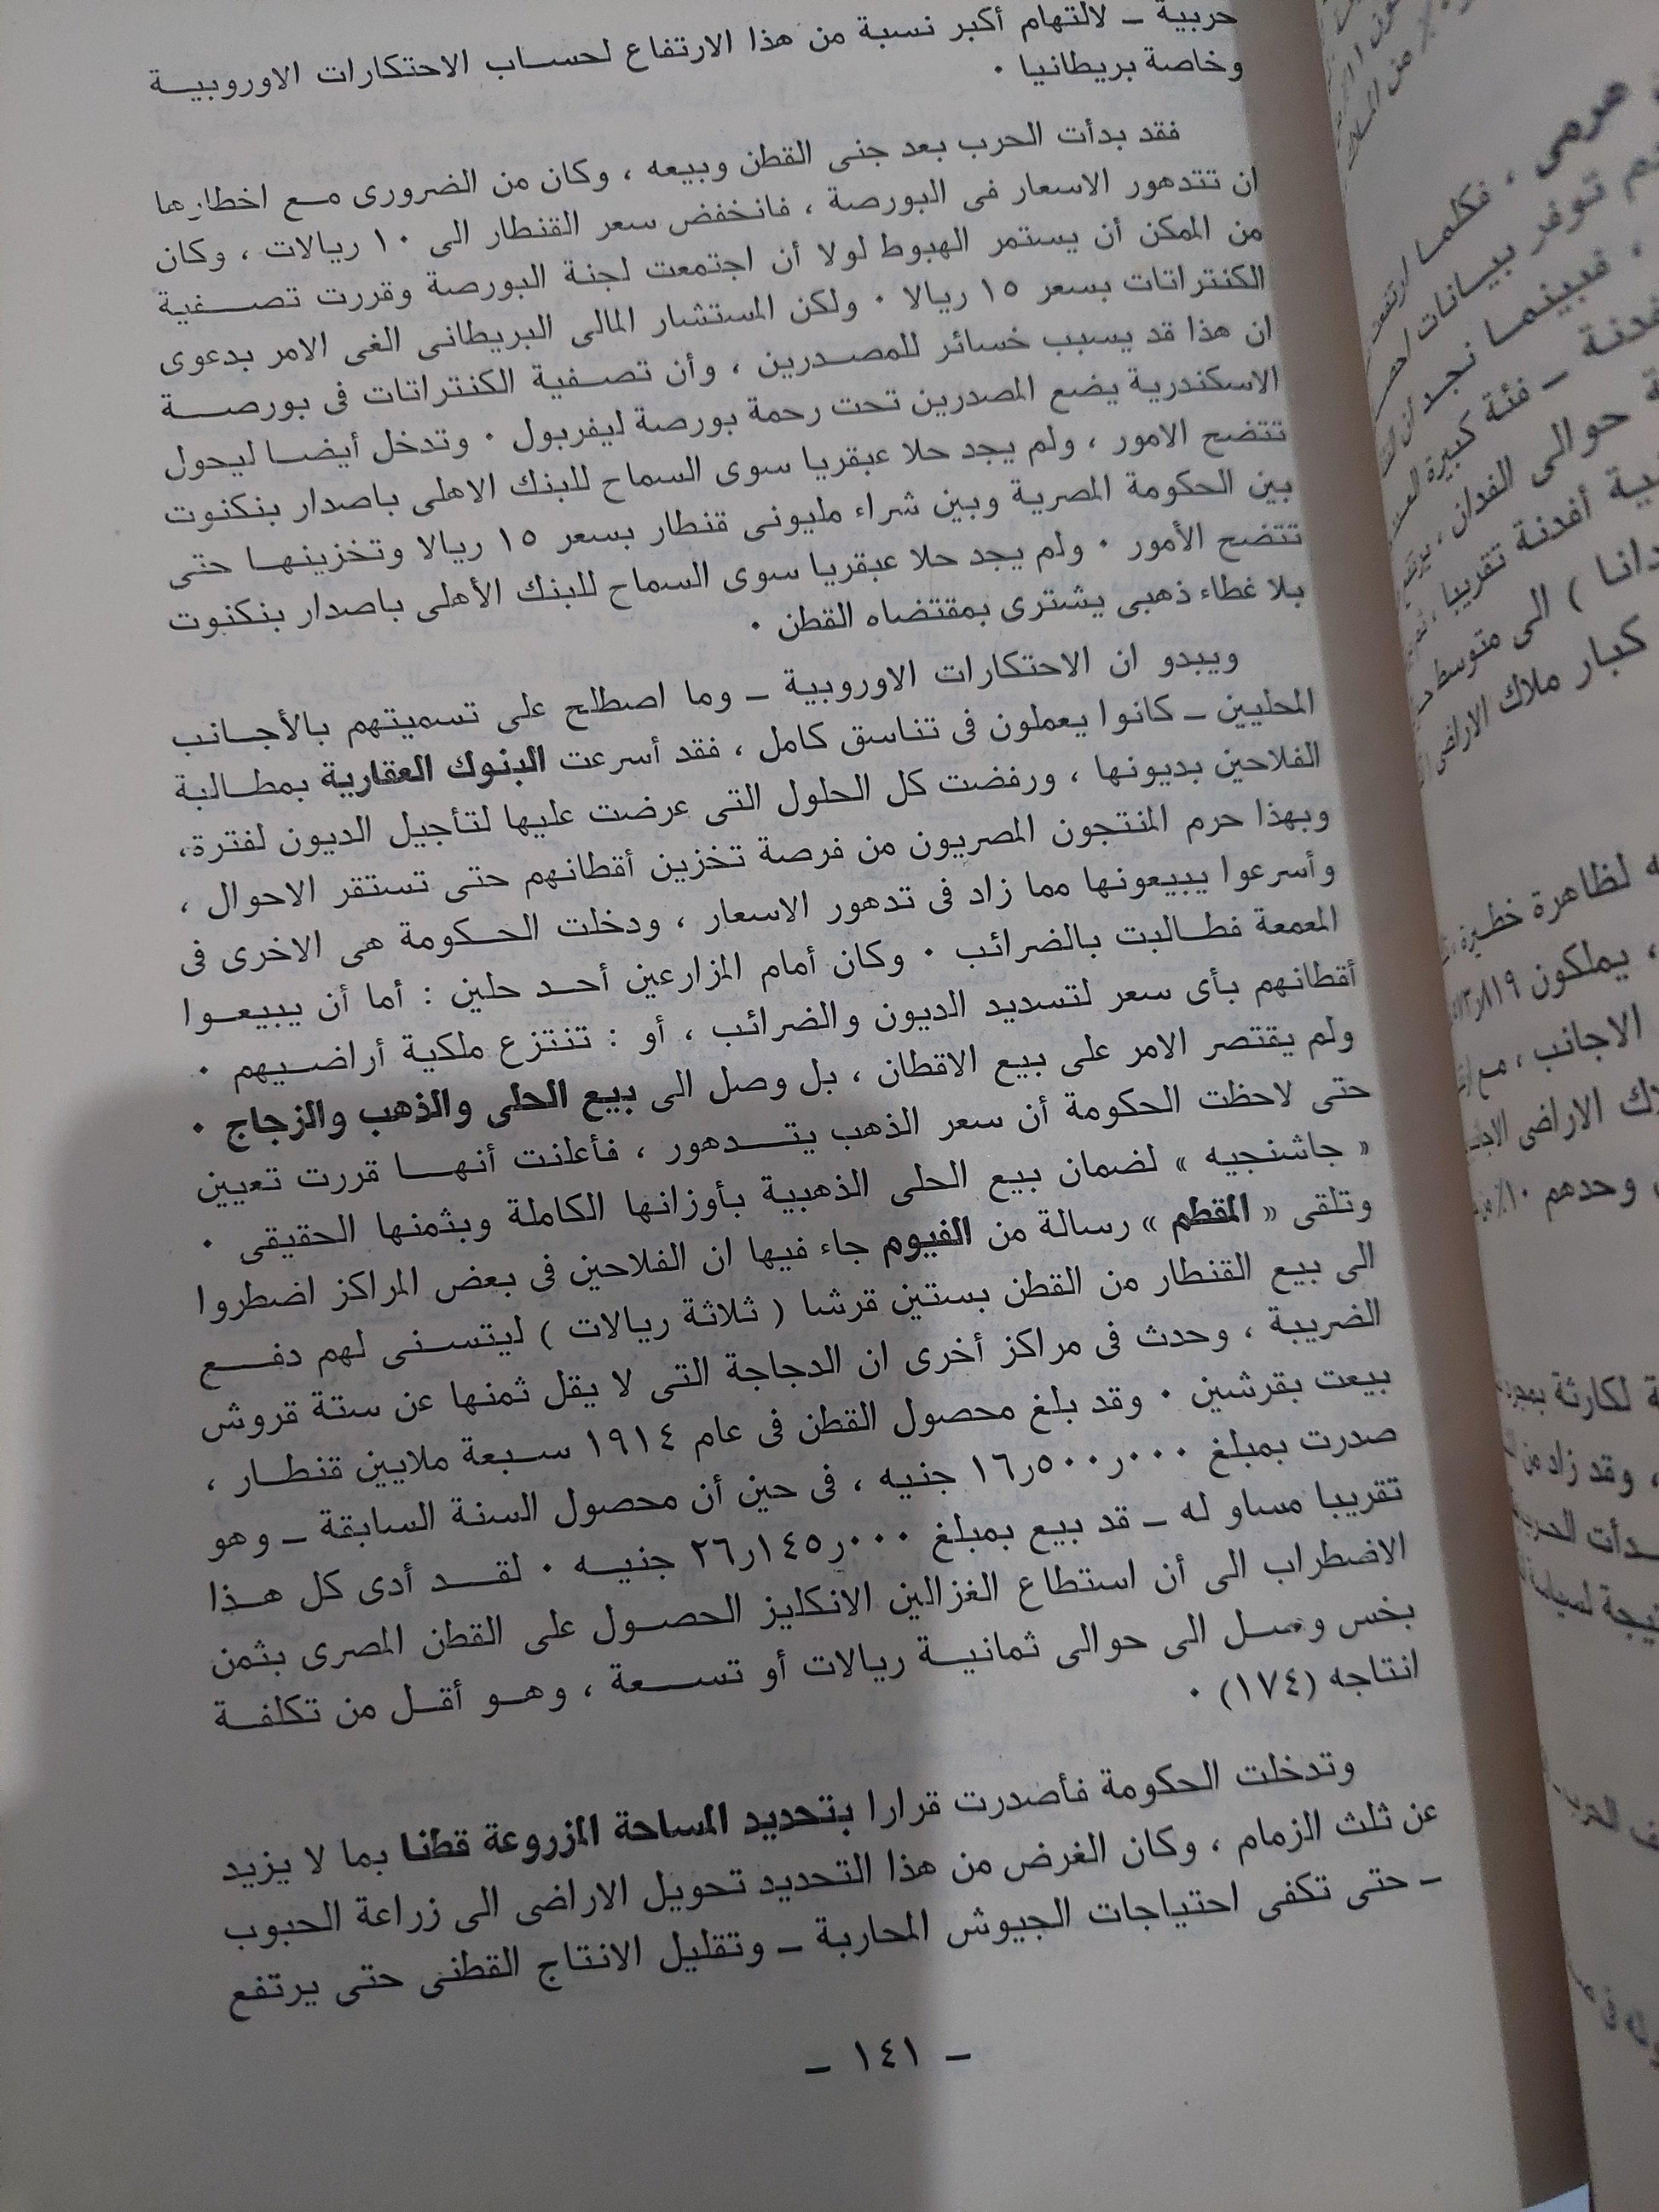 هرمى ، فكلما ارتفعت
توفر بيانات
، فبينما نجد أن
فئة كبيرة
حوالى الفدان ،
أفدنة تقريبا ،
الى متوسط
كبار ملاك الاراضى
لظاهرة خطيرة ،
، يملكون
الاجانب ، مع
الاراضى
وحدهم ١٠٪
لكارثة
، وقد زاد من
حربية – لالتهام أكبر نسبة من هذا الارتفاع لحساب الاحتكارات الاوروبية
وخاصة بريطانيا ٠
فقد بدأت الحرب بعد جنى القطن وبيعه ، وكان من الضرورى مع اخطارها
ان تتدهور الاسعار فى البورصة ، فانخفض سعر القنطار الى ١٠ ريالات ، وكان
من الممكن أن يستمر الهبوط لولا أن اجتمعت لجنة البورصة وقررت تصفية
الكنتراتات بسعر ١٥ ريالا ٠ ولكن المستشار المالى البريطانى الغى الامر بدعوى
ان هذا قد يسبب خسائر للمصدرين ، وأن تصفية الكنتراتات فى بورصة
الاسكندرية يضع المصدرين تحت رحمة بورصة ليفربول ٠ وتدخل أيضا ليحول
تتضح الامور ، ولم يجد حلا عبقريا سوى السماح للبنك الاهلى باصدار بنكنوت
بين الحكومة المصرية وبين شراء مليونى قنطار بسعر ١٥ ريالا وتخزينها حتى
تتضح الأمور ٠ ولم يجد حلا عبقريا سوى السماح للبنك الأهلى باصدار بنكنوت
بلا غطاء ذهبى يشترى بمقتضاه القطن ٠
ويبدو ان الاحتكارات الاوروبية – وما اصطلح على تسميتهم بالأجانب
المحليين – كانوا يعملون فى تناسق كامل ، فقد أسرعت البنوك العقارية بمطالبة
الفلاحين بديونها ، ورفضت كل الحلول التى عرضت عليها لتأجيل الديون لفترة،
وبهذا حرم المنتجون المصريون من فرصة تخزين أقطانهم حتى تستقر الاحوال ،
وأسرعوا يبيعونها مما زاد فى تدهور الاسعار ، ودخلت الحكومة هى الاخرى فى
المعمعة فطالبت بالضرائب ٠ وكان أمام المزارعين أحد حلين : أما أن يبيعوا
أقطانهم بأى سعر لتسديد الديون والضرائب ، أو : تنتزع ملكية أراضيهم ٠
ولم يقتصر الامر على بيع الاقطان ، بل وصل الى بيع الحلى والذهب والزجاج ٠
حتى لاحظت الحكومة أن سعر الذهب يتدهور ، فأعلنت أنها قررت تعيين
« جاشنجيه » لضمان بيع الحلى الذهبية بأوزانها الكاملة وبثمنها الحقيقى ٠
وتلقى « المقطم » رسالة من الفيوم جاء فيها ان الفلاحين فى بعض المراكز اضطروا
الى بيع القنطار من القطن بستين قرشا ( ثلاثة ريالات ) ليتسنى لهم دفع
الضريبة ، وحدث فى مراكز أخرى ان الدجاجة التى لا يقل ثمنها عن ستة قروش
بيعت بقرشين ٠ وقد بلغ محصول القطن فى عام ١٩١٤ سبعة ملايين قنطار ،
صدرت بمبلغ ١٦ر٥٠٠ر٠٠٠ جنيه ، فى حين أن محصول السنة السابقة – وهو
تقريبا مساو له – قد بيع بمبلغ ٢٦ر١٤٥ر٠٠٠ جنيه ٠ لقد أدى كل هذا
الاضطراب الى أن استطاع الغزالين الانكليز الحصول على القطن المصرى بثمن
بخس وصل الى حوالى ثمانية ريالات أو تسعة ، وهو أقل من تكلفة
انتاجه (١٧٤) ٠
وتدخلت الحكومة فأصدرت قرارا بتحديد المساحة المزروعة قطنا بما لا يزيد
عن ثلث الزمام ، وكان الغرض من هذا التحديد تحويل الاراضى الى زراعة الحبوب
– حتى تكفى احتياجات الجيوش المحاربة – وتقليل الانتاج القطنى حتى يرتفع
– ١٤١ –